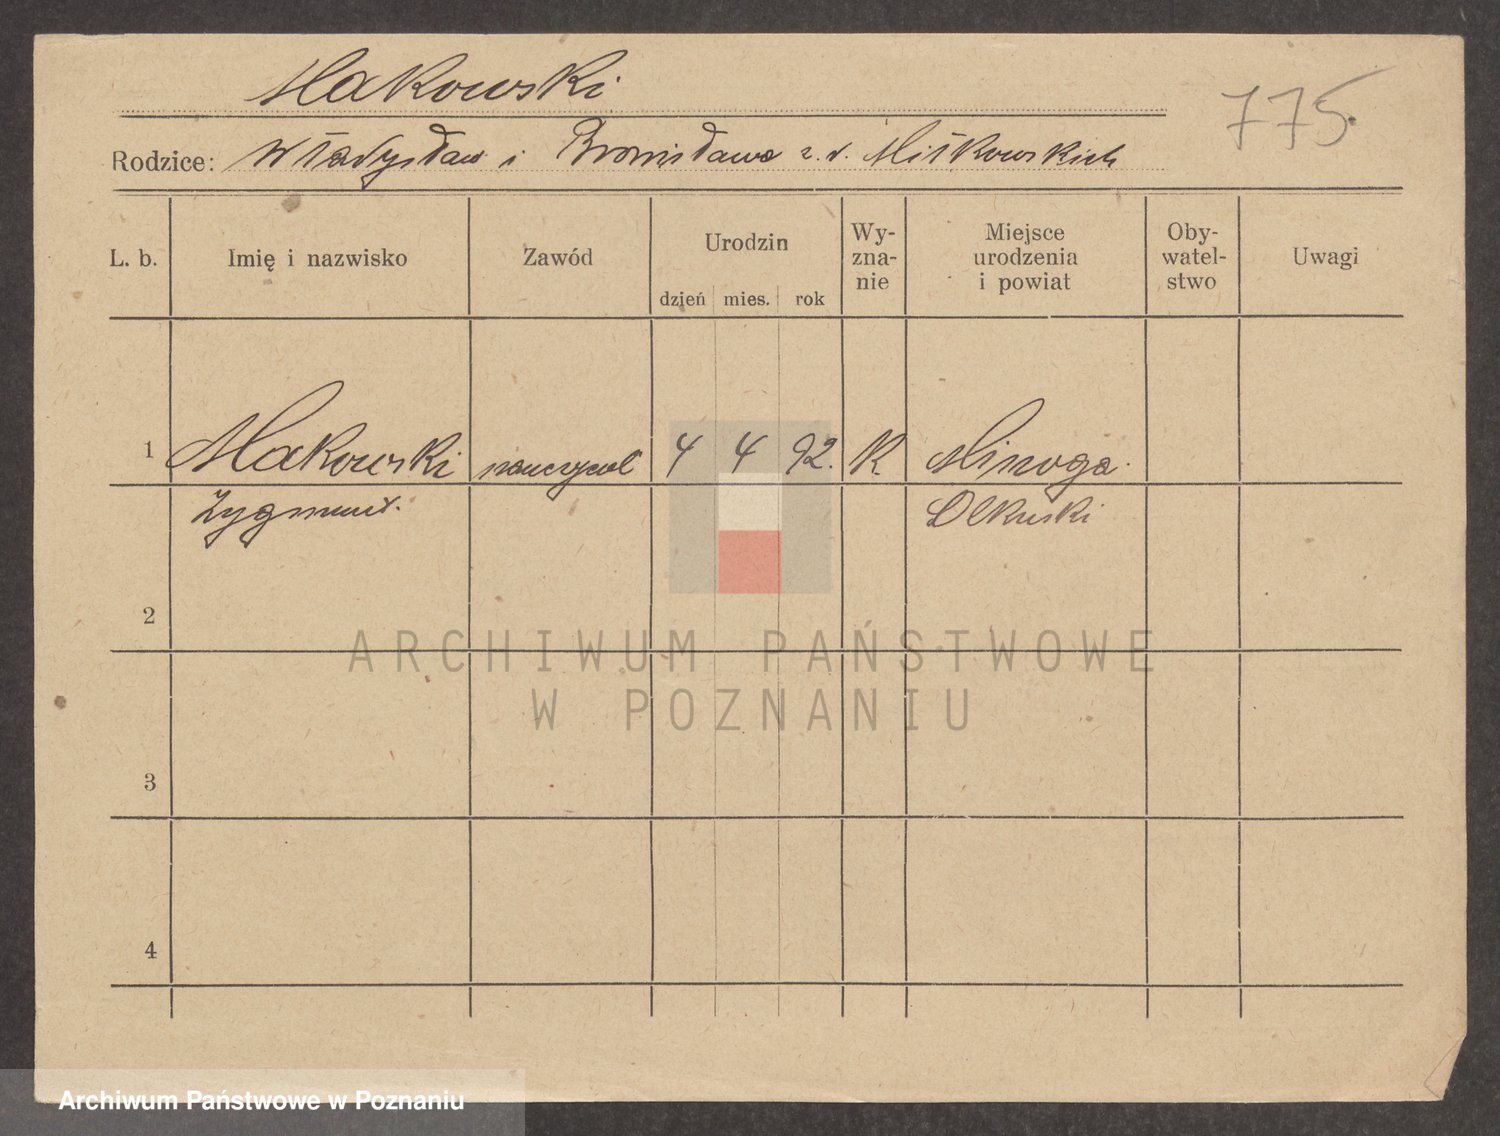 Makowski
775.
Rodzice: Władysław i Bronisława z d. Miłkowskich
L. b. Imię i nazwisko Zawód Urodzin dzień mies. rok Wy-zna-nie Miejsce urodzenia i powiat Oby-watel-stwo Uwagi
1 Makowski nauczyciel 4 4 92. K Minoga
Zygmunt. Olkuski
2
ARCHIWUM PAŃSTWOWE
W POZNANIU
3
4
Archiwum Państwowe w Poznaniu